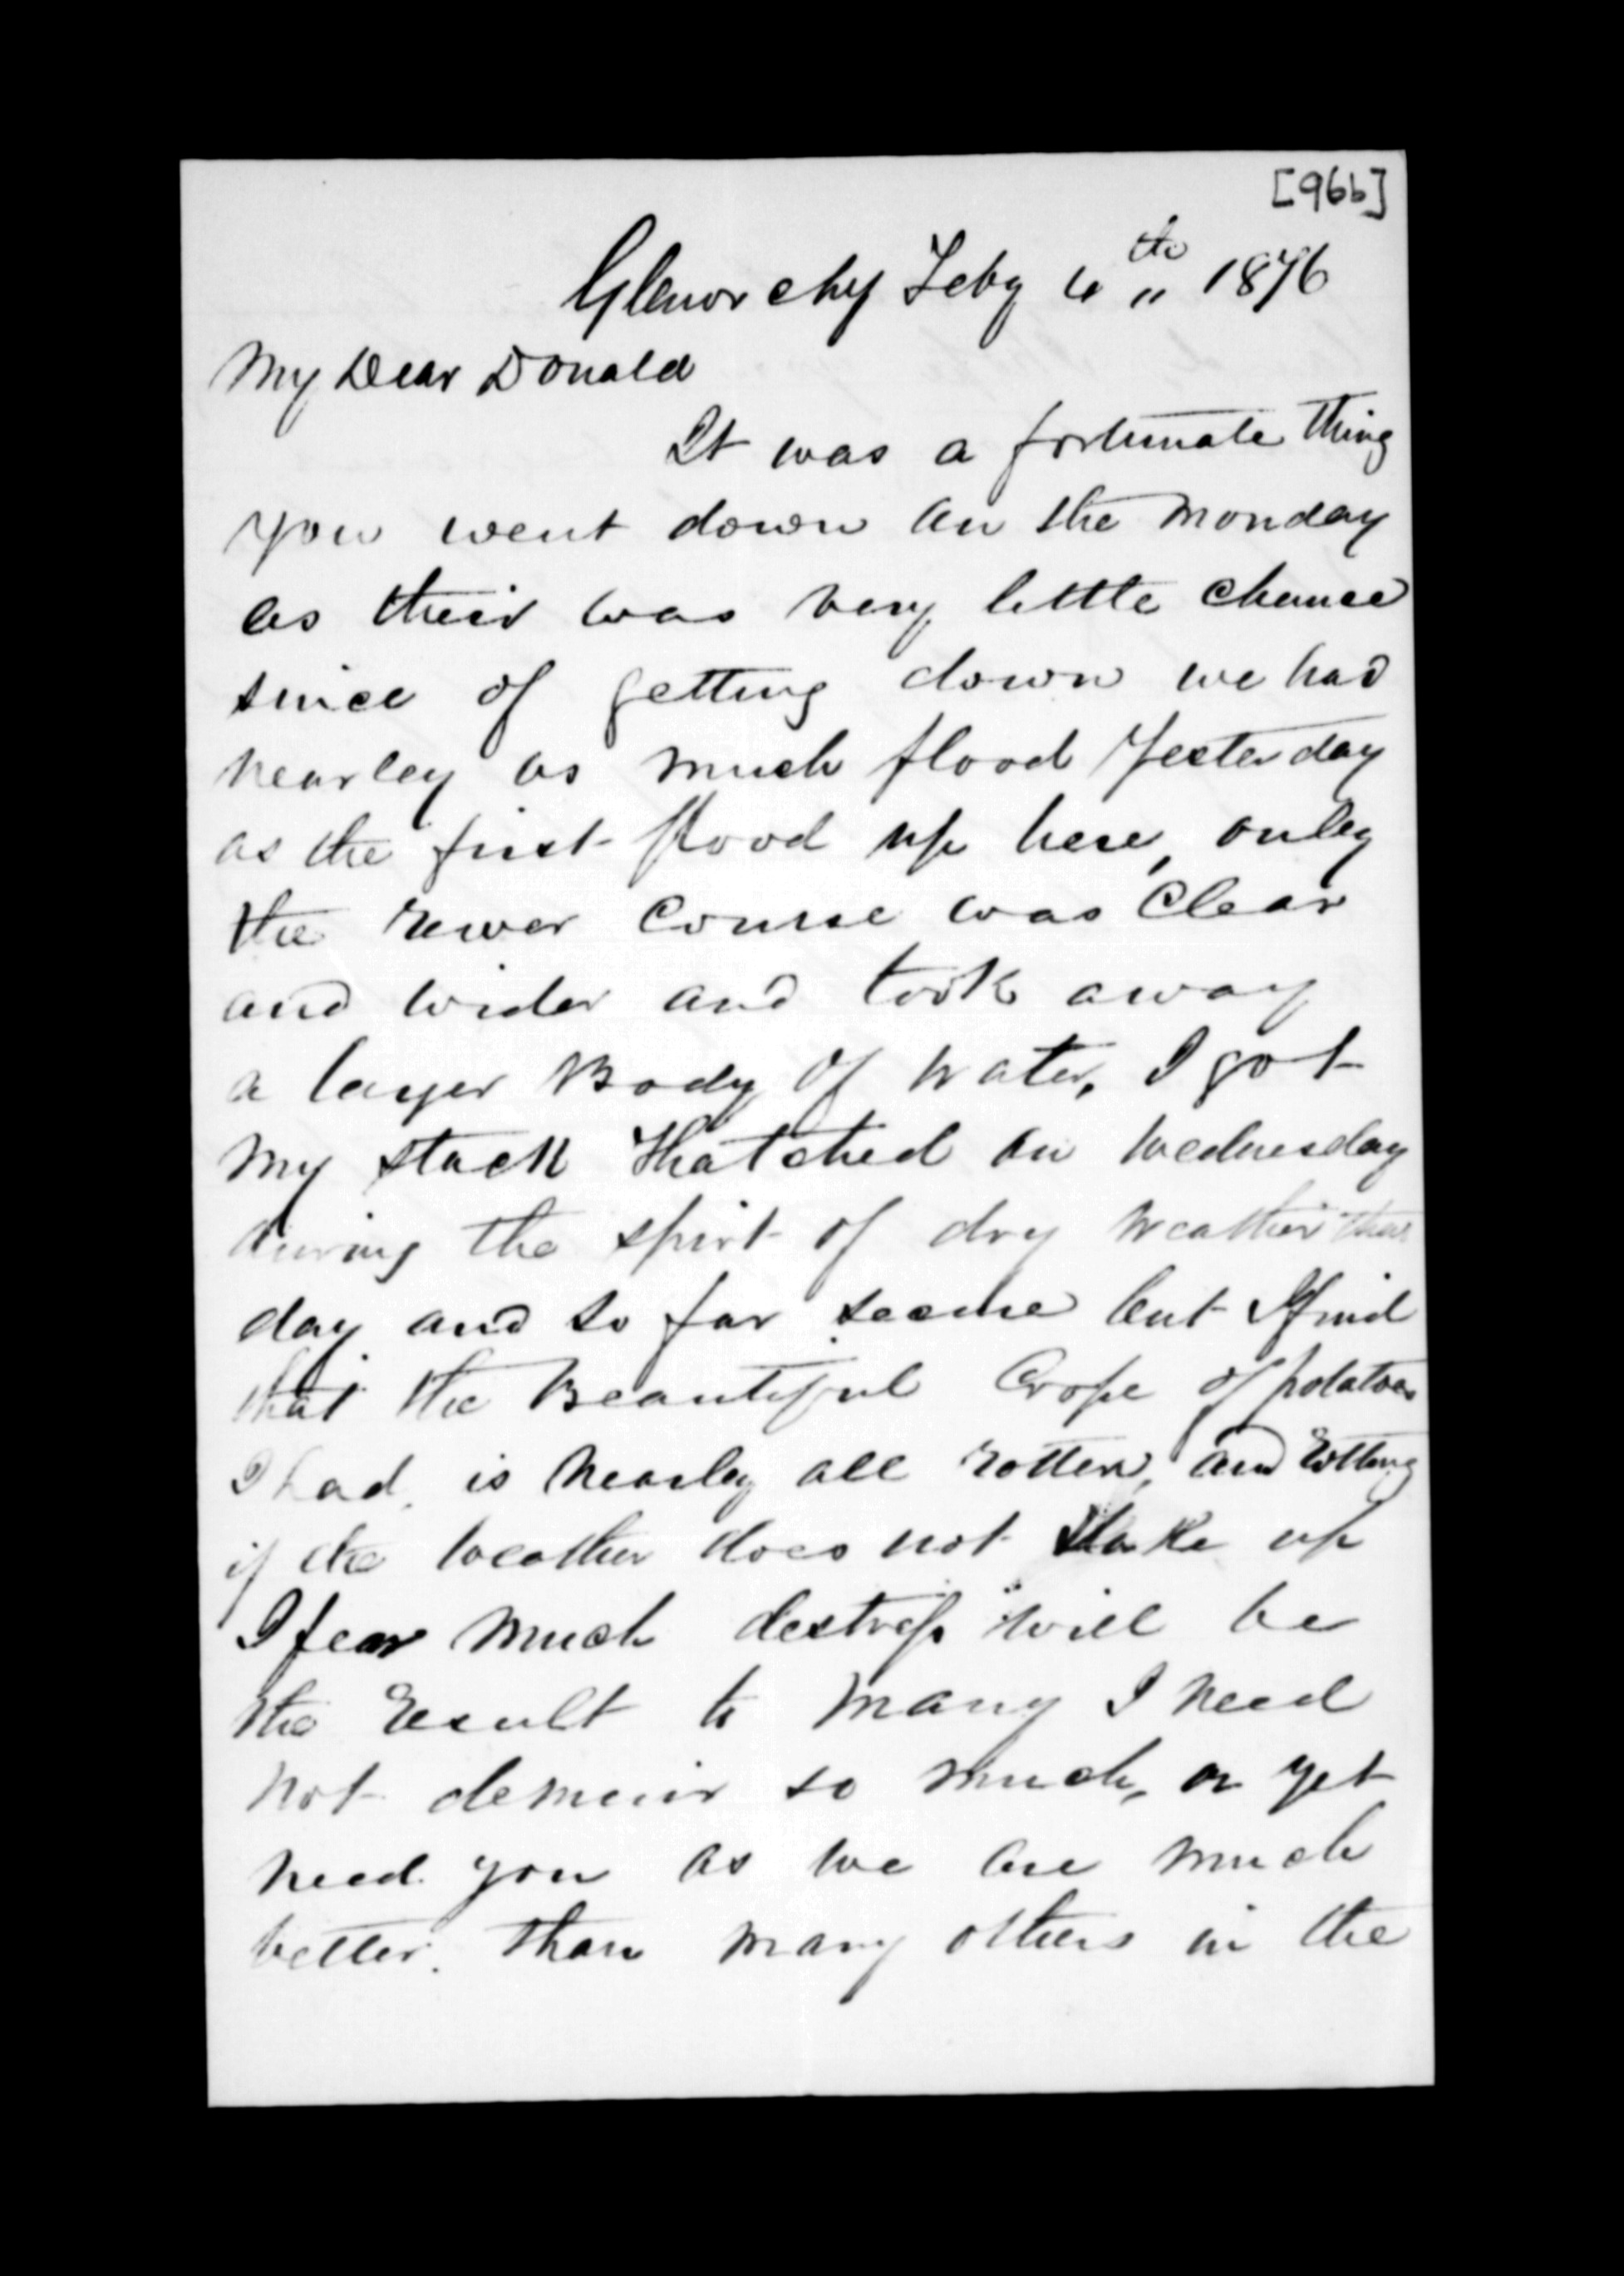 [96b]
Glenorchy Feby 4th 1876
My Dear Donald
It was a fortunate thing
you went down on the Monday
as their was very little chance
since of getting down we had
nearley as much flood Yesterday
as the first flood up here, onley
the rever Course was Clear
and wider and took away
a larger Body of water, I got
my stack thatched on Wednesday
during the spirt of dry weather that
day and so far secure but I find
that the Beautiful Crope of potatoes
I had, is nearley all rotten, and rotting
if the weather does not take up
I fear much destress will be
the result to many I need
not so much, or yet
need you as we are much
better than many others in the